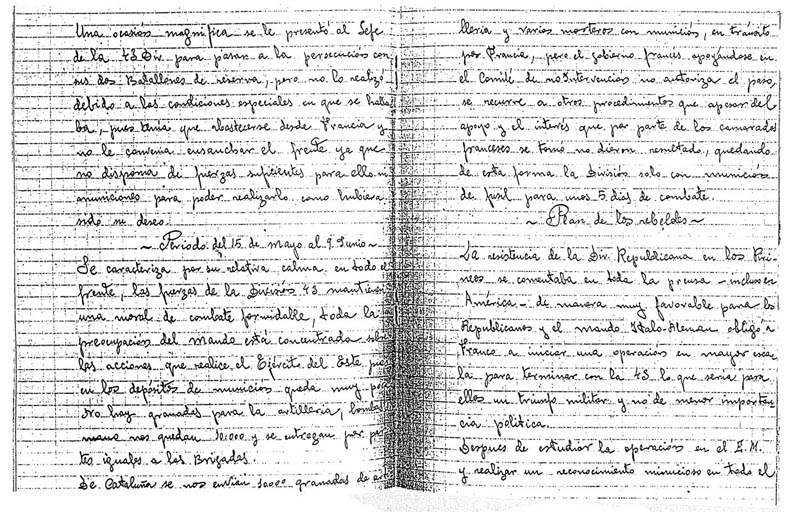 Una ocasión magnifica se le presentó al Jefe
de la 43 Div. para pasar a la persecución con
sus dos Batallones de reserva, pero no lo realizó
debido a las condiciones especiales en que se halla
ba, pues tenia que abastecerse desde Francia y
no le convenia ensanchar el frente ya que
no disponia de fuerzas suficientes para ello ni
municiones para poder realizarlo como hubiera
sido su deseo.
~ Periodo del 15 de mayo al 9 Junio ~
Se caracteriza por su relativa calma en todo el
frente, las fuerzas de la División 43 mantienen
una moral de combate formidable, toda la
preocupación del mando está concentrada sobre
las acciones que realice el Ejército del Este pues
en los depósitos de municios queda muy poco
No hay granadas para la artilleria, bombas
mano nos quedan 10.000 y se entregan por par
tes iguales a las Brigadas.
De Cataluña se nos envian granadas de ar
lleria y varios morteros con municiós, en tránsito
por Francia, pero el gobierno frances apoyándose en
el Comité de no Intervención no autoriza el paso,
se recurre a otros procedimientos que apesar del
apoyo y el interés que por parte de los camaradas
franceses se tomó no dieron resultado, quedando
de esta forma la División solo con municios
de fusil para unos 5 dias de combate.
~ Plan de los rebeldes ~
La resistencia de la Div. Republicana en los Piri-
neos se comentaba en toda la prensa - incluso en
America - de manera muy favorable para los
Republicanos y el mando Italo-Aleman obligó a
Franco a iniciar una operación en mayor esca
la para terminar con la 43 lo que seria para
ellos un triunfo militar y no de menor importan
cia politica.
Despues de estudiar la operación en el E.M.
y realizar un reconocimiento minucioso en todo el